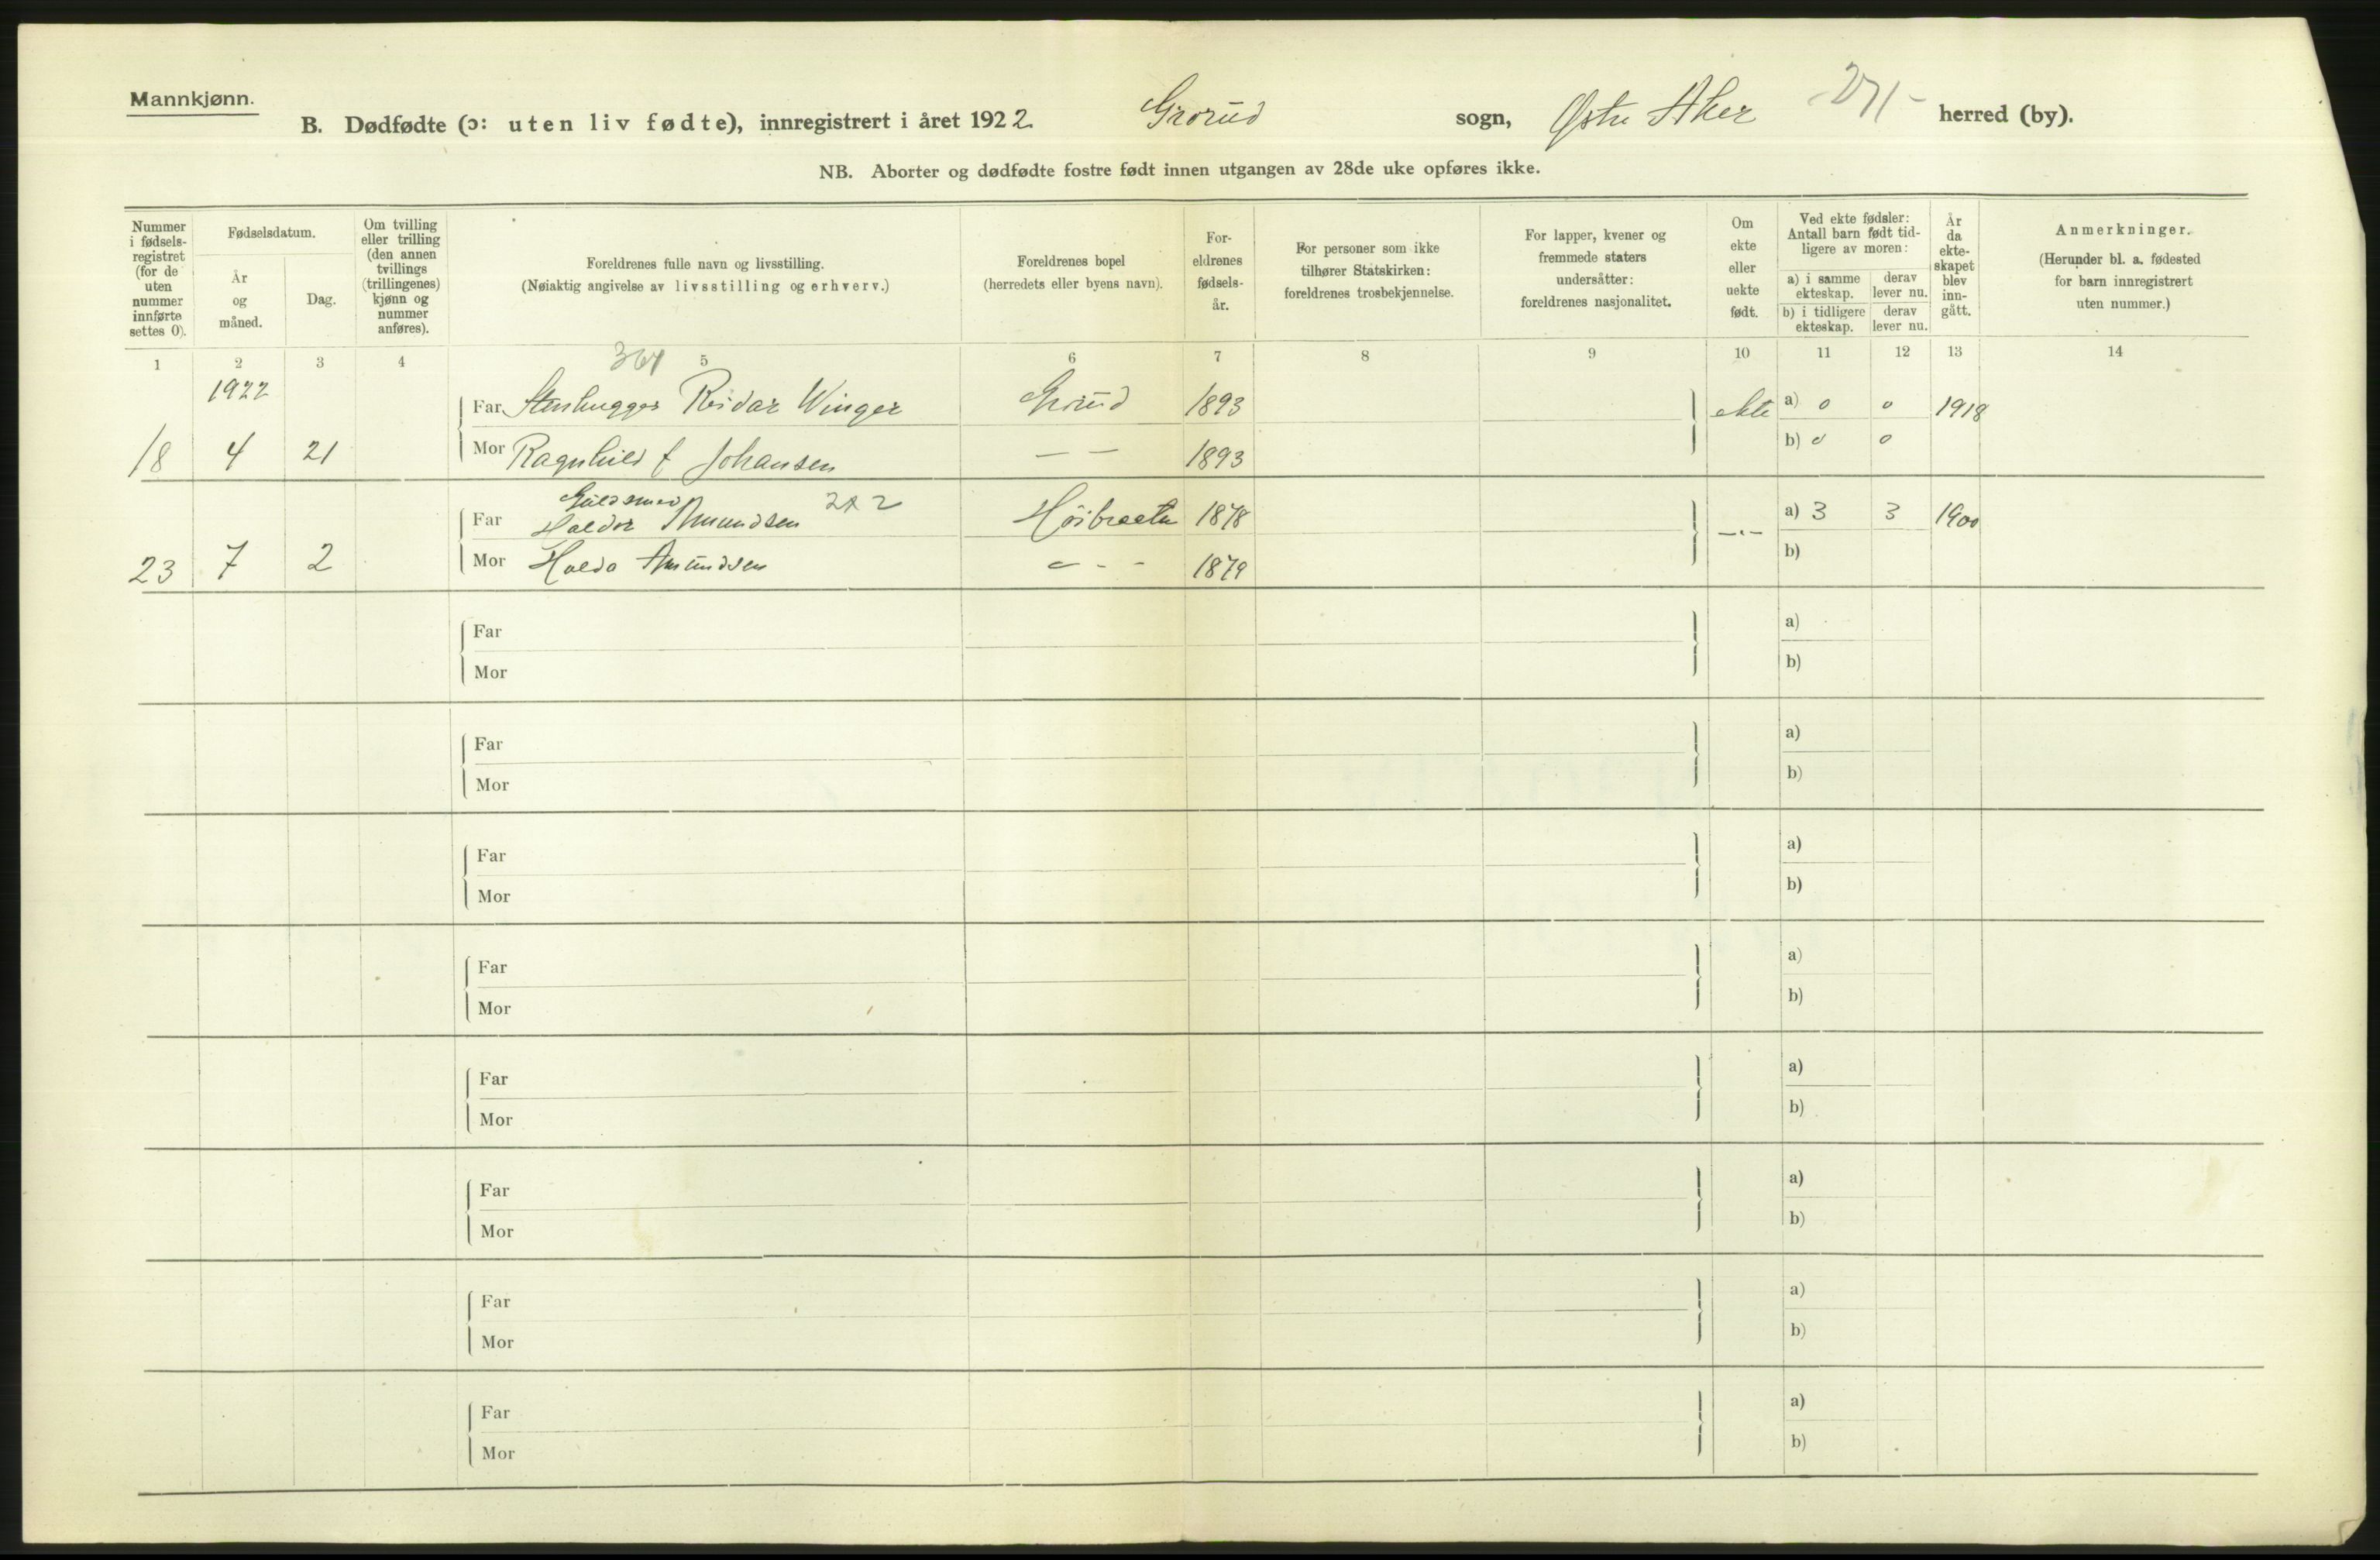 Mannkjønn.
B. Dødfødte (ɔ: uten liv fødte), innregistrert i året 1922 Grorud sogn, Østre Aker -271- herred (by).
NB. Aborter og dødfødte fostre født innen utgangen av 28de uke opføres ikke.
Nummer i fødsels-registret (for de uten nummer innførte settes 0).
Fødselsdatum.
År og måned.
Dag.
Om tvilling eller trilling (den annen tvillings (trillingenes) kjønn og nummer anføres).
Foreldrenes fulle navn og livsstilling.
(Nøiaktig angivelse av livsstilling og erhverv.)
Foreldrenes bopel
(herredets eller byens navn).
For-eldrenes fødsels-år.
For personer som ikke tilhører Statskirken: foreldrenes trosbekjennelse.
For lapper, kvener og fremmede staters undersåtter: foreldrenes nasjonalitet.
Om ekte eller uekte født.
Ved ekte fødsler: Antall barn født tid-ligere av moren:
a) i samme ekteskap. derav lever nu.
b) i tidligere ekteskap. derav lever nu.
År da ekte-skapet blev inn-gått.
Anmerkninger.
(Herunder bl. a. fødested for barn innregistrert uten nummer.)
1 2 3 4 5 6 7 8 9 10 11 12 13 14
1922
Far Stenhugger Reidar Winger Grorud 1893 ekte a) 0 0 1918
18 4 21 Mor Ragnhild f Johansen — — 1893 b) 0 0
Guldsmed
Far Haldor Amundsen Høibraaten 1878 —"— a) 3 3 1900
23 7 2 Mor Hulda Amundsen — - - 1879 b)
Far a)
Mor b)
Far a)
Mor b)
Far a)
Mor b)
Far a)
Mor b)
Far a)
Mor b)
Far a)
Mor b)
Far a)
Mor b)
Far a)
Mor b)